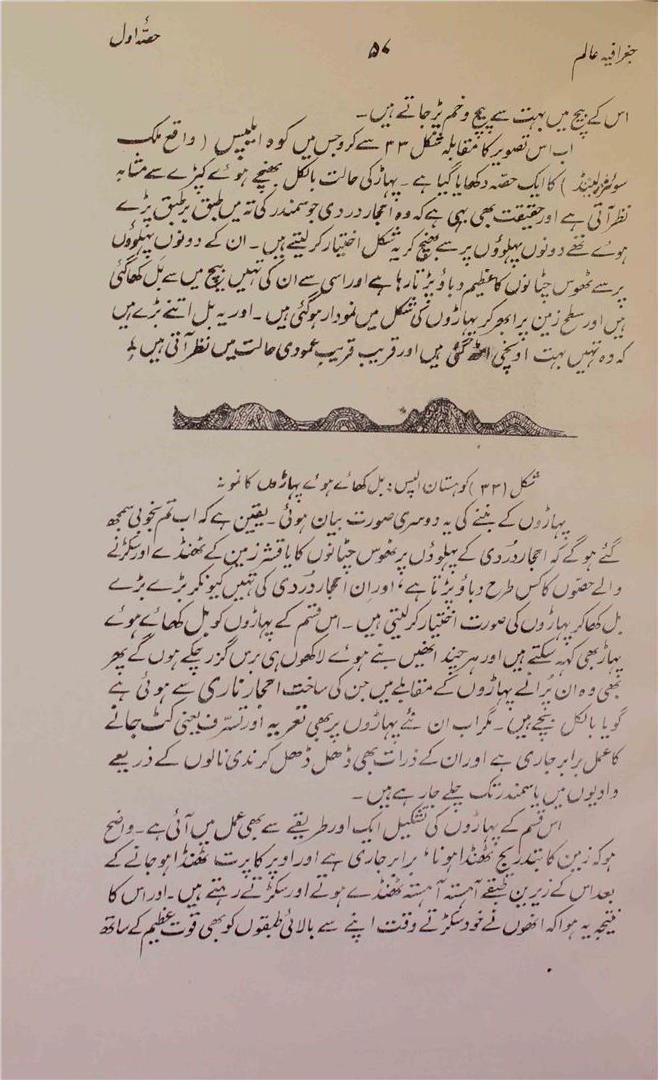 جغرافیہ عالم ۵۷ حصّۂ اول
اس کے بیچ میں بہت سے پیچ و خم پڑجاتے ہیں۔
اب اس تصویر کا مقابلہ شکل ۳۳ سے کرو جس میں کوہ ایلپس ( واقع ملک
سوئٹزرلینڈ ) کا ایک حصّہ دکھایا گیا ہے۔ پہاڑ کی حالت بالکل بھنچے ہوے کپڑے سے مشابہ
نظر آتی ہے اور حقیقت بھی یہی ہے کہ وہ احجار دردی جو سمندر کی تہ میں طبق بر طبق پڑے
ہوے تھے دونوں پہلوؤں پر سے بھنچ کر یہ شکل اختیار کرلیتے ہیں۔ ان کے دونوں پہلوؤں
پر سے ٹھوس چٹانوں کا عظیم دباؤ پڑتا رہا ہے اور اسی سے ان کی تہیں بیچ میں سے بَل کھا گئی
ہیں اور سطح زمین پر ابھر کر پہاڑوں کی شکل میں نمودار ہوگئی ہیں۔ اور یہ بل اتنے بڑے ہیں
کہ وہ تہیں بہت اونچی اٹھ گئی ہیں اور قریب قریب عمودی حالت میں نظر آتی ہیں
شکل (۳۳) کوہستان الپس: بل کھائے ہوے پہاڑوں کا نمونہ
پہاڑوں کے بننے کی یہ دوسری صورت بیان ہوئی۔ یقین ہے کہ اب تم بخوبی سمجھ
گئے ہوگے کہ احجار دُردی کے پہلوؤں پر ٹھوس چٹانوں کا یا قشرِ زمین کے ٹھنڈے اور سکڑنے
والے حصّوں کا کس طرح دباؤ پڑتا ہے، اور اِن احجار دُردی کی تہیں کیونکر بڑے بڑے
بل کھا کر پہاڑوں کی صورت اختیار کرلیتی ہیں۔ اس قسم کے پہاڑوں کو بل کھائے ہوے
پہاڑ بھی کہہ سکتے ہیں اور ہر چند انھیں بنے ہوے لاکھوں ہی برس گزر چکے ہوں گے پھر
بھی وہ ان پُرانے پہاڑوں کے مقابلے میں جن کی ساخت احجار ناری سے ہوئی ہے
گویا بالکل بچے ہیں۔ مگر اب ان نئے پہاڑوں پر بھی تعریہ اور تسرّف یعنی کٹ جانے
کا عمل برابر جاری ہے اور ان کے ذرات بھی ڈھل ڈھل کر ندی نالوں کے ذریعے
وادیوں میں یا سمندر تک چلے جارہے ہیں۔
اس قسم کے پہاڑوں کی تشکیل ایک اور طریقے سے بھی عمل میں آئی ہے۔ واضح
ہو کہ زمین کا بتدریج ٹھنڈا ہونا، برابر جاری ہے اور اوپر کا پرت ٹھنڈا ہوجانے کے
بعد اس کے زیرین طبقے آہستہ آہستہ ٹھنڈے ہوتے اور سکڑتے رہتے ہیں۔ اور اس کا
نتیجہ یہ ہوا کہ انھوں نے خود سکڑتے وقت اپنے سے بالائی طبقوں کو بھی قوت عظیم کے ساتھ